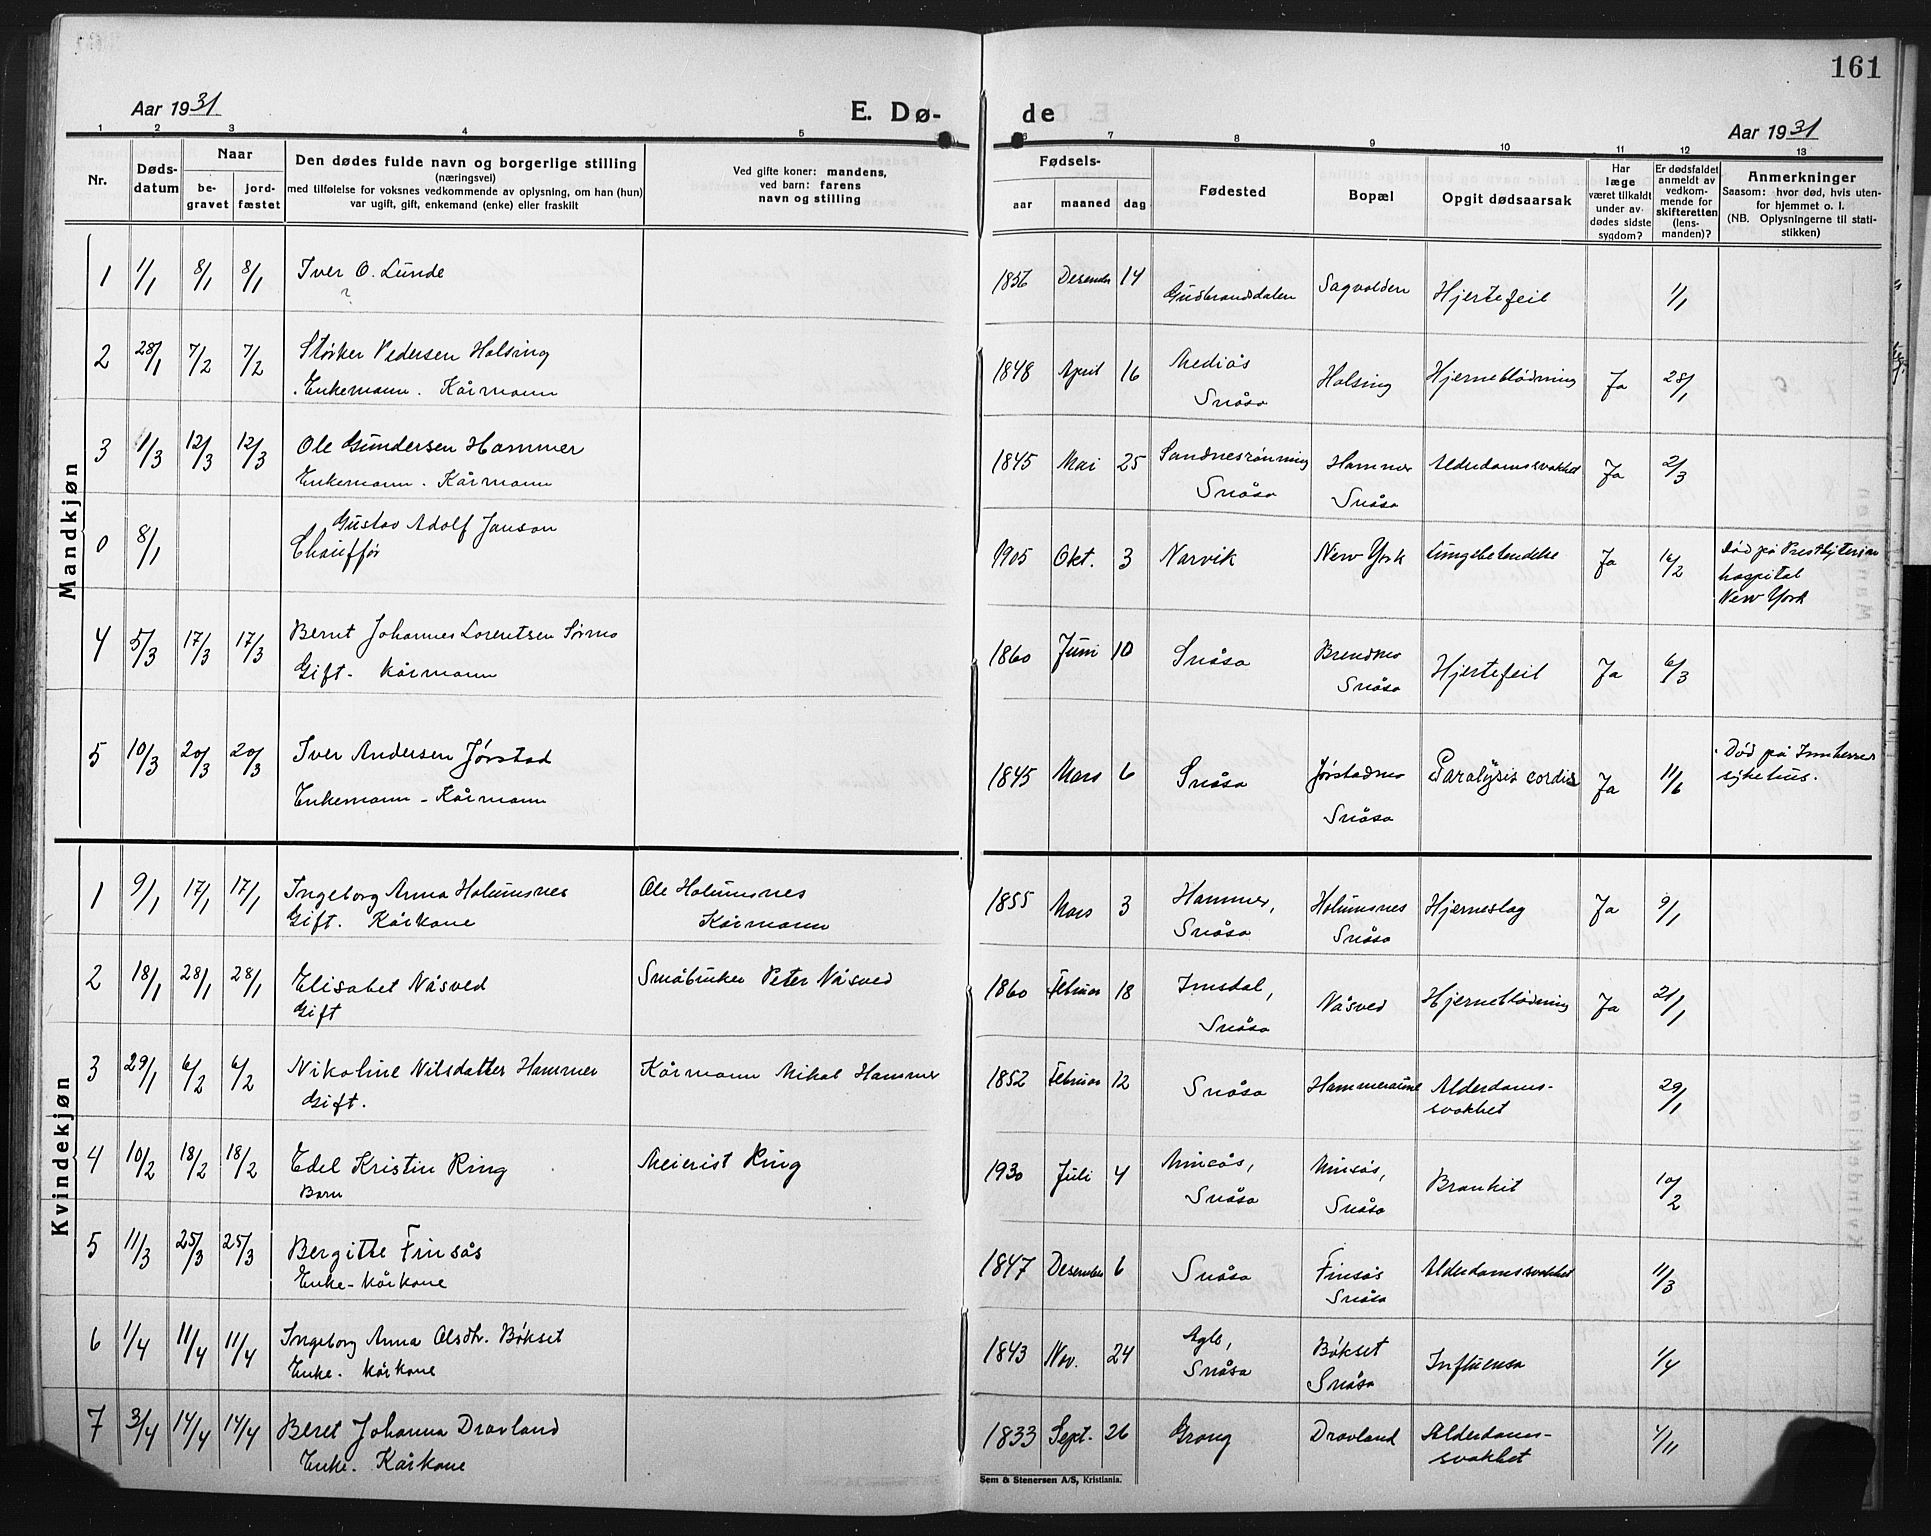 161
Aar 1931
E. Dø-
de
Aar 1931
1 2 3 4 5 6 7 8 9 10 11 12 13
Nr.
Døds-
datum
Naar
be-
gravet
jord-
fæstet
Den dødes fulde navn og borgerlige stilling
(næringsvei)
med tilføielse for voksnes vedkommende av oplysning, om han (hun)
var ugift, gift, enkemand (enke) eller fraskilt
Ved gifte koner: mandens,
ved barn: farens
navn og stilling
Fødsels-
aar maaned dag
Fødested
Bopæl
Opgit dødsaarsak
Har
læge
været tilkaldt
under av-
dødes sidste
sygdom?
Er dødsfaldet
anmeldt av
vedkom-
mende for
skifteretten
(lens-
manden)?
Anmerkninger
Saasom: hvor død, hvis uten-
for hjemmet o. l.
(NB. Oplysningerne til stati-
stikken)
Mandkjøn
1 1/1 8/1 8/1 Iver O. Lunde 1856 Desember 14 Gudbrandsdalen Sagvolden Hjertefeil 1/1
?
2 28/1 7/2 7/2 Størker Pedersen Holsing 1848 April 16 Mediås Holsing Hjerneblødning Ja 28/1
Enkemann. Kårmann Snåsa
3 1/3 12/3 12/3 Ole Gundersen Hammer 1845 Mai 25 Sandnesrønning Hammer Alderdomssvakhet Ja 2/3
Enkemann. Kårmann Snåsa Snåsa
0 8/1 Gustav Adolf Janson 1905 Okt. 3 Narvik New York Lungebetendelse Ja 16/2 Død på Presbyterian
Chauffør hospital
New York
4 5/3 17/3 17/3 Bernt Johannes Lorentsen Sørmo 1860 Juni 10 Snåsa Brendmo Hjertefeil Ja 6/3
Gift. Kårmann Snåsa
5 10/3 20/3 20/3 Iver Andersen Jørstad 1845 Mars 6 Snåsa Jørstadmo Paralysis cordis Ja 11/6 Død på Innherred
Enkemann - Kårmann Snåsa sykehus.
Kvindekjøn
1 9/1 17/1 17/1 Ingeborg Anna Holumsnes Ole Holumsnes 1855 Mars 3 Hammer, Holumsnes Hjerneslag Ja 9/1
Gift. Kårkone Kårmann Snåsa Snåsa
2 18/1 28/1 28/1 Elisabet Våsved Småbruker Peter Våsved 1860 Februar 18 Imsdal, Våsved Hjerneblødning Ja 21/1
Gift Snåsa
3 29/1 6/2 6/2 Nikoline Nilsdatter Hammer Kårmann Mikal Hammer 1852 Februar 12 Snåsa Alderdoms- 29/1
Gift. svakhet
4 10/2 18/2 18/2 Edel Kristin Ring Meierist Ring 1930 Juli 4 Vinsås, Vinsås, Bronkit 10/2
Barn Snåsa Snåsa
5 11/3 25/3 25/3 Bergitte Finsås 1847 Desember 6 Snåsa Finsås Alderdomssvakhet 11/3
Enke - Kårkone Snåsa
6 1/4 11/4 11/4 Ingeborg Anna Olsdtr. Bøkset 1843 Nov. 24 Agle, Bøkset Influensa 1/4
Enke. Kårkone Snåsa Snåsa
7 3/4 14/4 14/4 Beret Johanna Dravland 1833 Sept. 26 Grong Dravland Alderdoms- 4/11
Enke. Kårkone svakhet
Sem & Stenersen A/S, Kristiania.